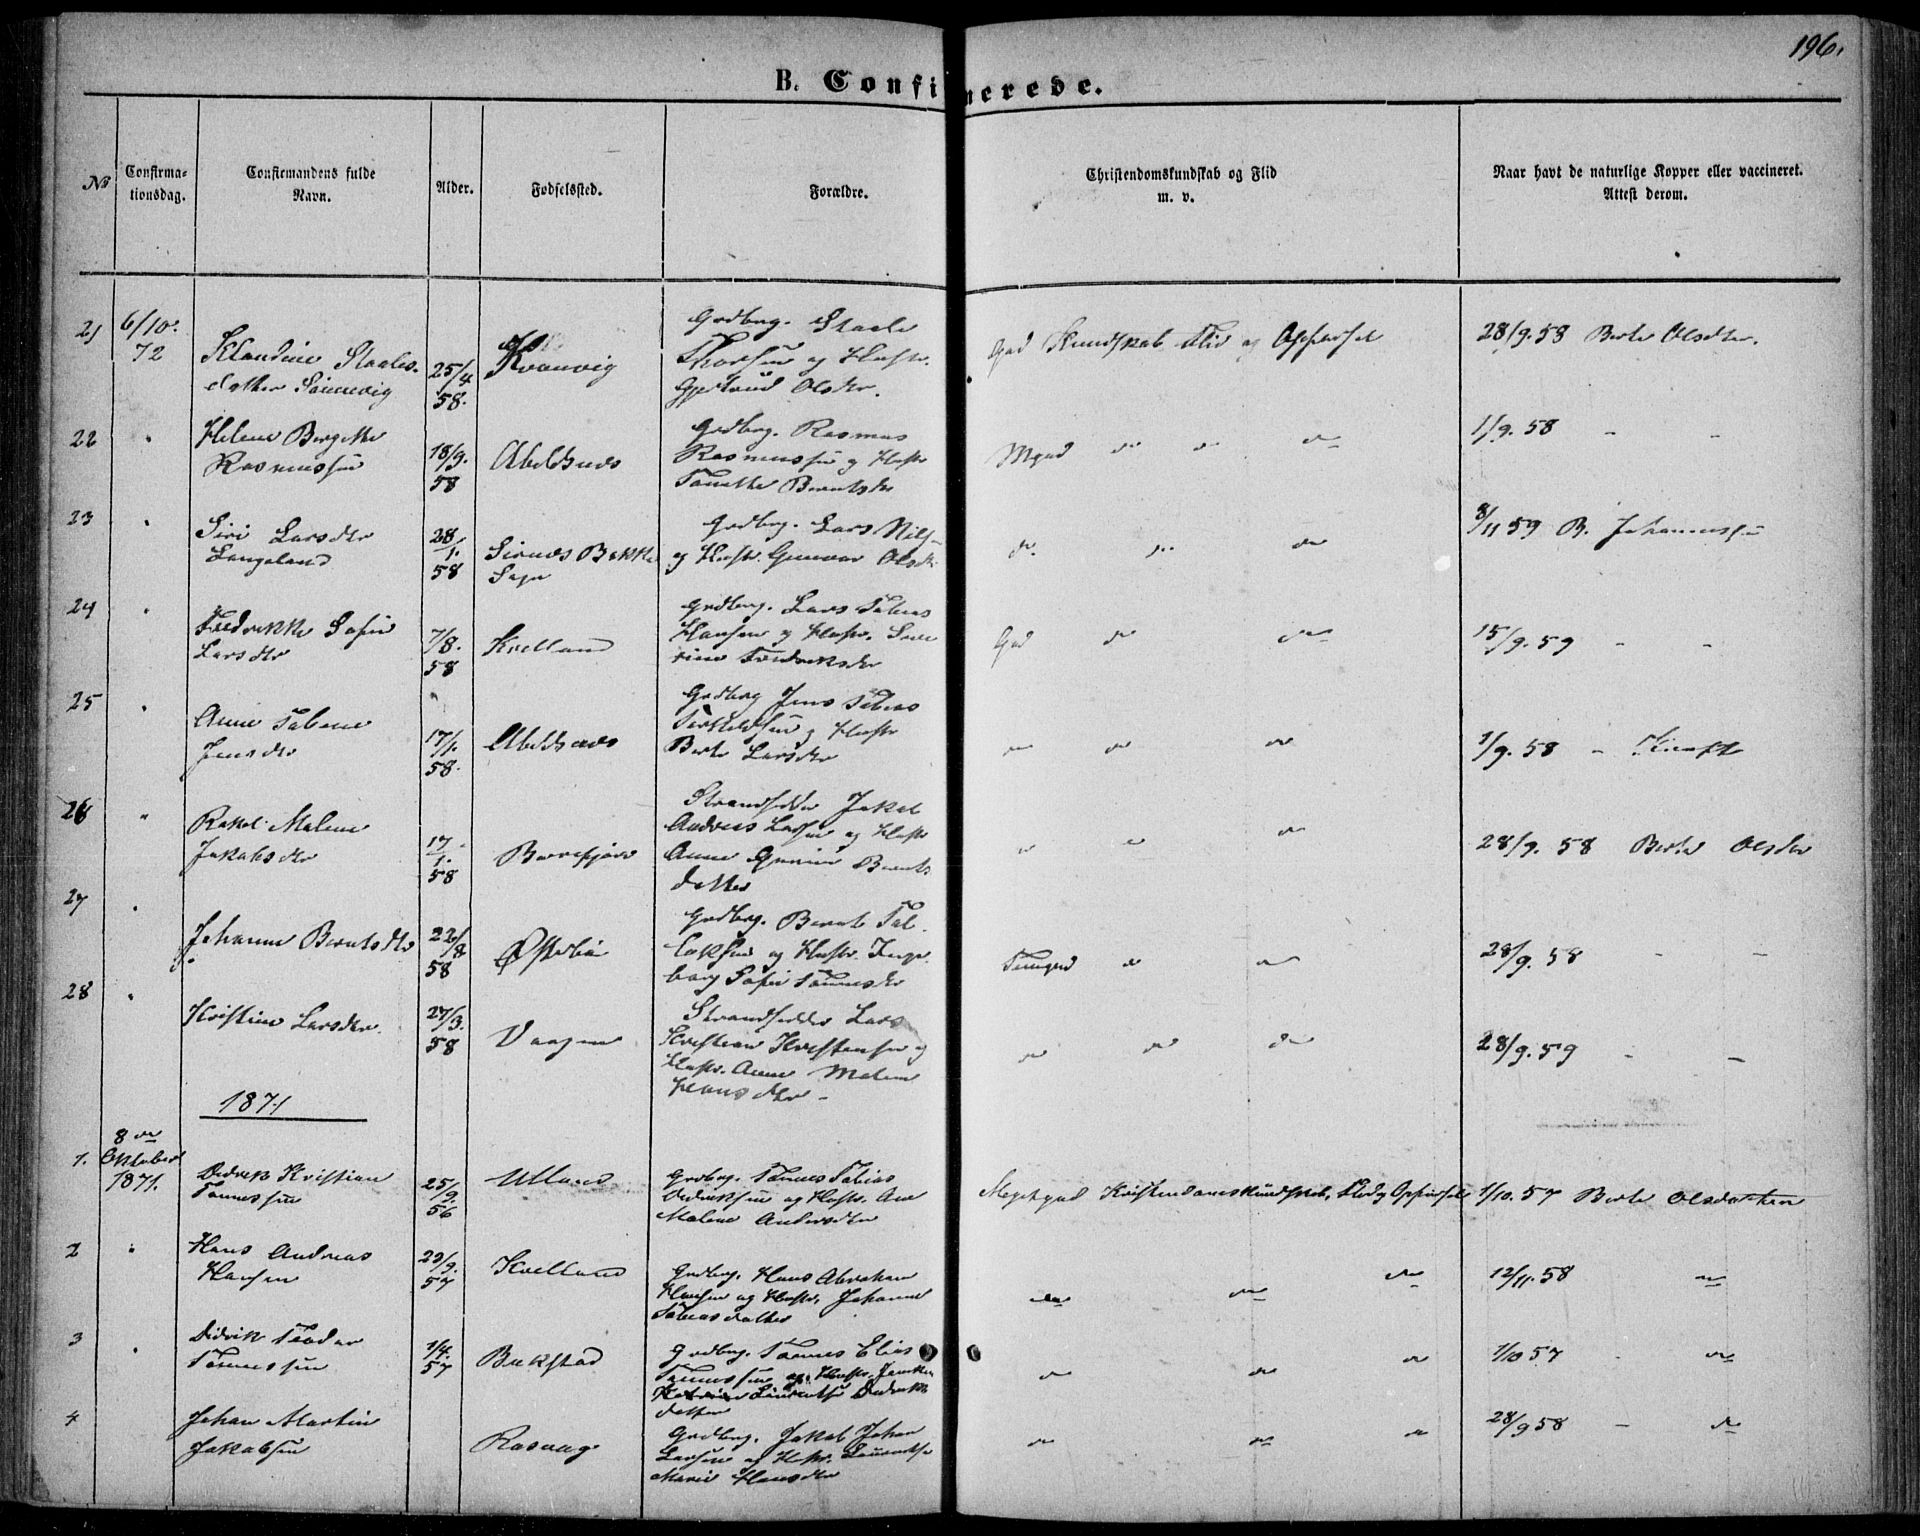 196.
B. Confirmerede.
No
Confirma-
tionsdag.
Confirmandens fulde
Navn.
Alder.
Fødselssted.
Forældre.
Christendomskundskab og Flid
m. v.
Naar havt de naturlige Kopper eller vaccineret.
Attest derom.
21 6/10. 72
Klandine Staales-
datter
25/4 58.
Grdbrg. Staale
og Hustr.
Olsdtr.
God Kundskab Flid og Opførsel
28/9. 58 Berte Olsdtr.
22 "
Helene Bergitte
Rasmussen
18/9. 58
Abelsnes
Grdbrg. Rasmus
Rasmussen og Hustr
Tonette Berntsdtr
Mgod do do do
1/9. 58 - -
23 "
Siri Larsdtr
Langeland
28/1. 58
Sirnes Bakke
Sogn
Grdbrg. Lars Nils
og Hustr. Gunvor Olsdtr
do. do do
8/11 59 B. Johannessen
24 "
Fredrikke Sofie
Larsdtr
7/8. 58
Kvelland
Grdbrg. Lars Tobias
Hansen og Hustr. Seve
rine Fredriksdtr
God do do
15/9. 59 - -
25 "
Anne Tobine
Jensdtr
17/1. 58.
Abelsnes
Grdbrg Jens Tobias
Terkeldsen og Hustr
Berte Larsdtr
do do do
1/9. 58 -
26 "
Rakel Malene
Jakobsdtr
17/1. 58
Strandsidder Jakob
Andreas Larsen og Hustr
Anne Gurine Bernts
datter
do do do
28/9. 58 Berte Olsdtr
27 "
Johanne Berntsdtr
22/8 58
Østebø
Grdbrg. Bernt Tal-
laksen og Hustr. Inge-
borg Sofie Tønnesdtr
Temgod do do
28/9. 58 - -
28 "
Kristine Larsdtr.
27/3. 58
Vaagen
Strandsidder Lars
Kristian Kristensen og
Hustr. Anne Malene
Hansdtr -
do do do
28/9. 59 - -
1871
1. 8de
Oktober
1871.
Didrik Kristian
Tønnessen
25/9. 56
Ulland
Grdbrg. Tønnes Tobias
Didriksen og Hustr. Ane
Malene Andersdtr
Megetgod Kristendomskundskab, Flid og Opførsel
1/10. 57 Berte Olsdatter
2 "
Hans Andreas
Hansen
22/9. 57
Kvelland
Grdbrg. Hans Abraham
Hansen og Hustr. Johanne
Tobiasdatter
do do do
12/11. 58 do
3 "
Didrik Teodor
Tønnessen
1/4. 57
Bakstad
Grdbrg. Tønnes Elias
Tønnessen og Hustr.
Didriks
datter
do do do
1/10 57 - do
4
Johan Martin
Jakobsen
Rasvaag
Grdbrg. Jakob Johan
Larsen og Hustr.
Marie Hansdtr
do do do
28/9 58 - do